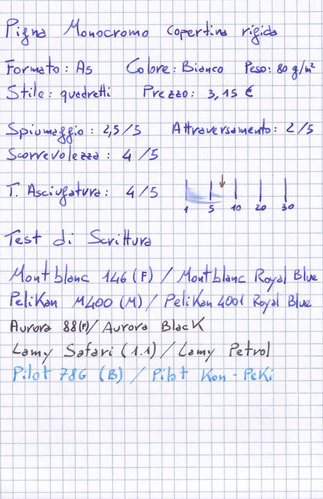 Pigna Monocromo copertina rigida
Formato: A5 Colore: Bianco Peso: 80 g/m²
Stile: quadretti Prezzo: 3,15 €
Spiumaggio: 2,5/5 Attraversamento: 2/5
Scorrevolezza: 4/5
T. Asciugatura: 4/5
1 5 10 20 30
Test di Scrittura
Montblanc 146 (F) / Montblanc Royal Blue
Pelikan M400 (M) / Pelikan 4001 Royal Blue
Aurora 88(F)/ Aurora Black
Lamy Safari (1.1) / Lamy Petrol
Pilot 78G (B) / Pilot Kon-Peki